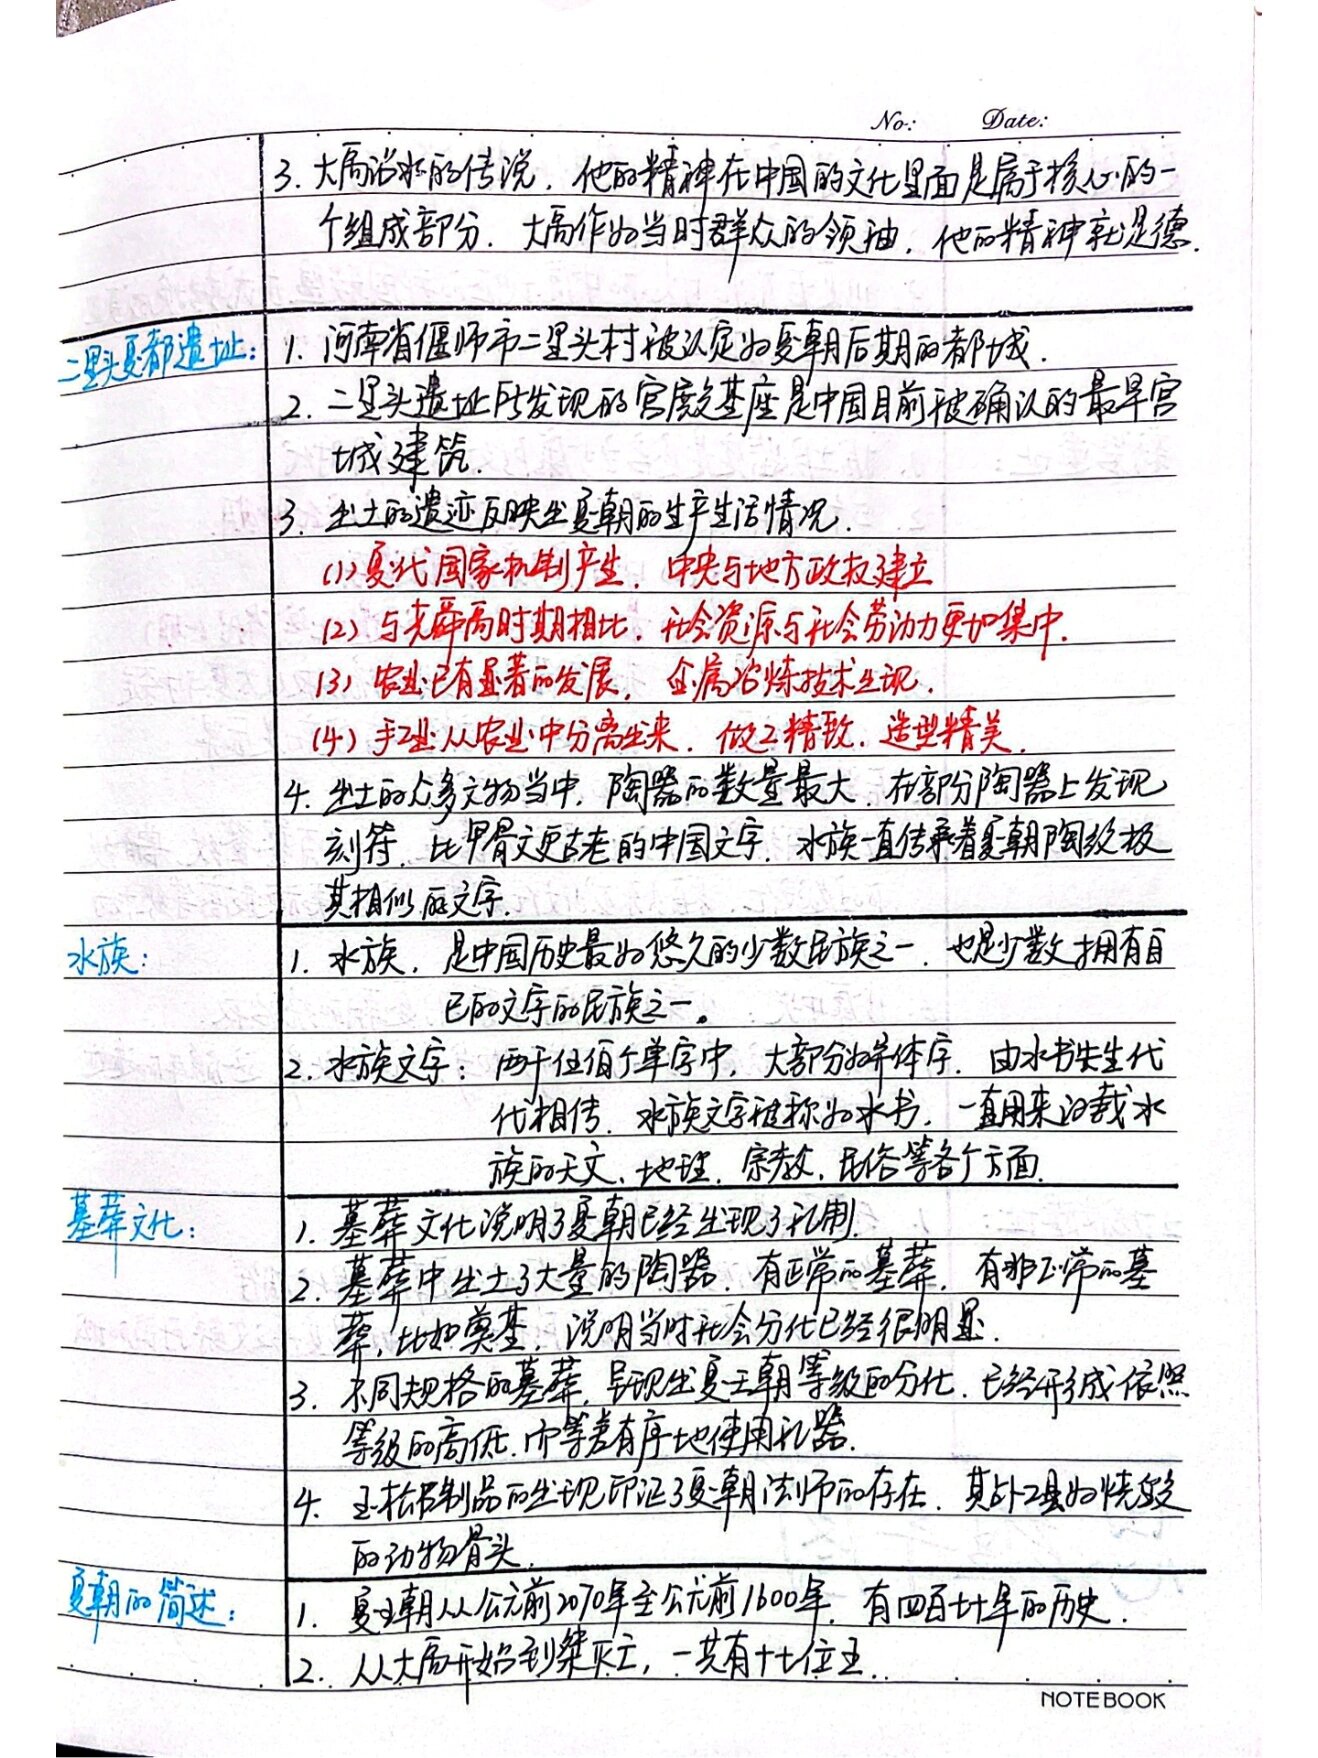 No: Date:
3. 大禹治水的传说，他的精神在中国的文化里面是属于核心的一
个组成部分．大禹作为当时群众的领袖，他的精神就是德．
二里头夏都遗址：
1. 河南省偃师市二里头村被认定为夏朝后期的都城．
2. 二里头遗址所发现的宫殿基座是中国目前被确认的最早宫
城建筑．
3. 出土的遗迹反映出夏朝的生产生活情况．
(1) 夏代国家机制产生．中央与地方政权建立
(2) 与尧舜禹时期相比，社会资源与社会劳动力更加集中．
(3) 农业已有显著的发展，金属冶炼技术出现．
(4) 手工业从农业中分离出来．做工精致．造型精美．
4. 出土的众多文物当中，陶器的数量最大．在部分陶器上发现
刻符．比甲骨文更古老的中国文字．水族一直传承着夏朝陶纹极
其相似的文字．
水族：
1. 水族，是中国历史最为悠久的少数民族之一．也是少数拥有自
己的文字的民族之一。
2. 水族文字：两千伍佰个单字中，大部分为异体字．由水书先生代
代相传．水族文字被称为水书．一直用来记载水
族的天文、地理．宗教．民俗等各个方面．
墓葬文化：
1. 墓葬文化说明了夏朝已经出现了礼制．
2. 墓葬中出土了大量的陶器．有正常的墓葬．有非正常的墓
葬，比如奠基．说明当时社会分化已经很明显．
3. 不同规格的墓葬．呈现出夏王朝等级的分化．已经形成依照
等级的高低．而等差有序地使用礼器．
4. 制品的出现印证了夏朝法师的存在．其工具为烧
的动物骨头．
夏朝的简述：
1. 夏王朝从公元前2070年至公元前1600年．有四百七十年的历史．
2. 从大禹开始到桀灭亡，一共有十七位王．
NOTEBOOK